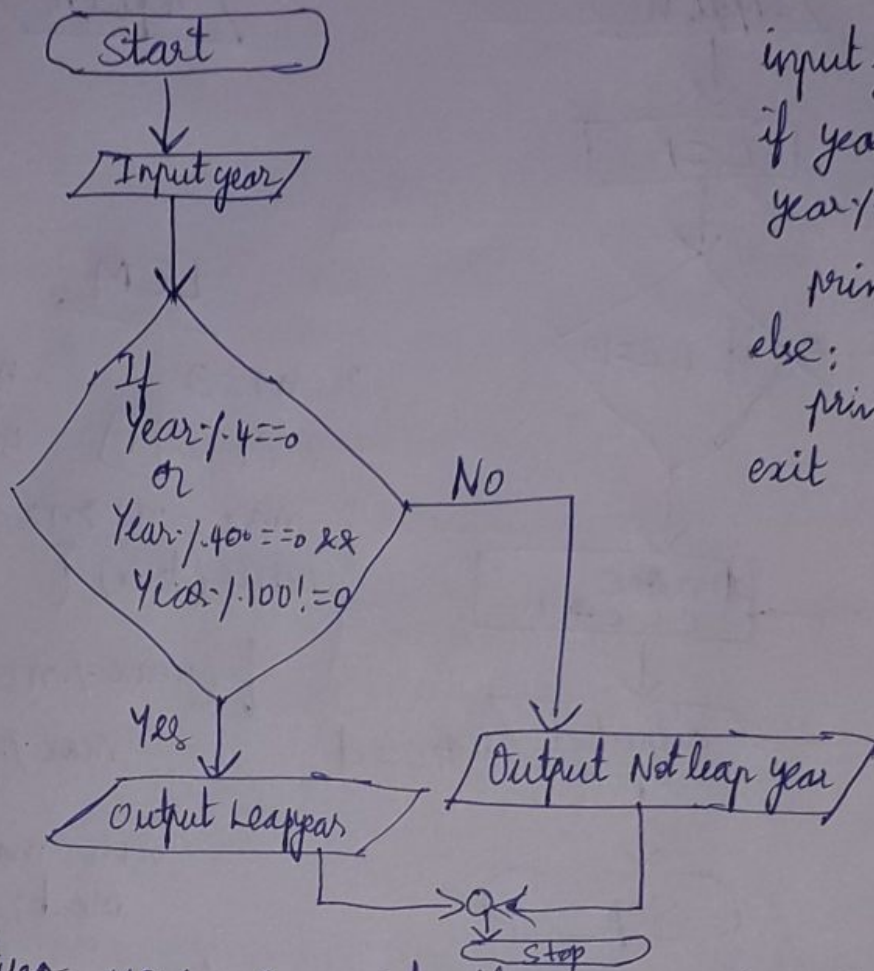 Start
Input year
If
Year % 4==0
or
Year % 400==0 &&
Year % 100!=0
No
Yes
Output Leapyear
Output Not leap year
Stop
input
if
year %
else:
exit